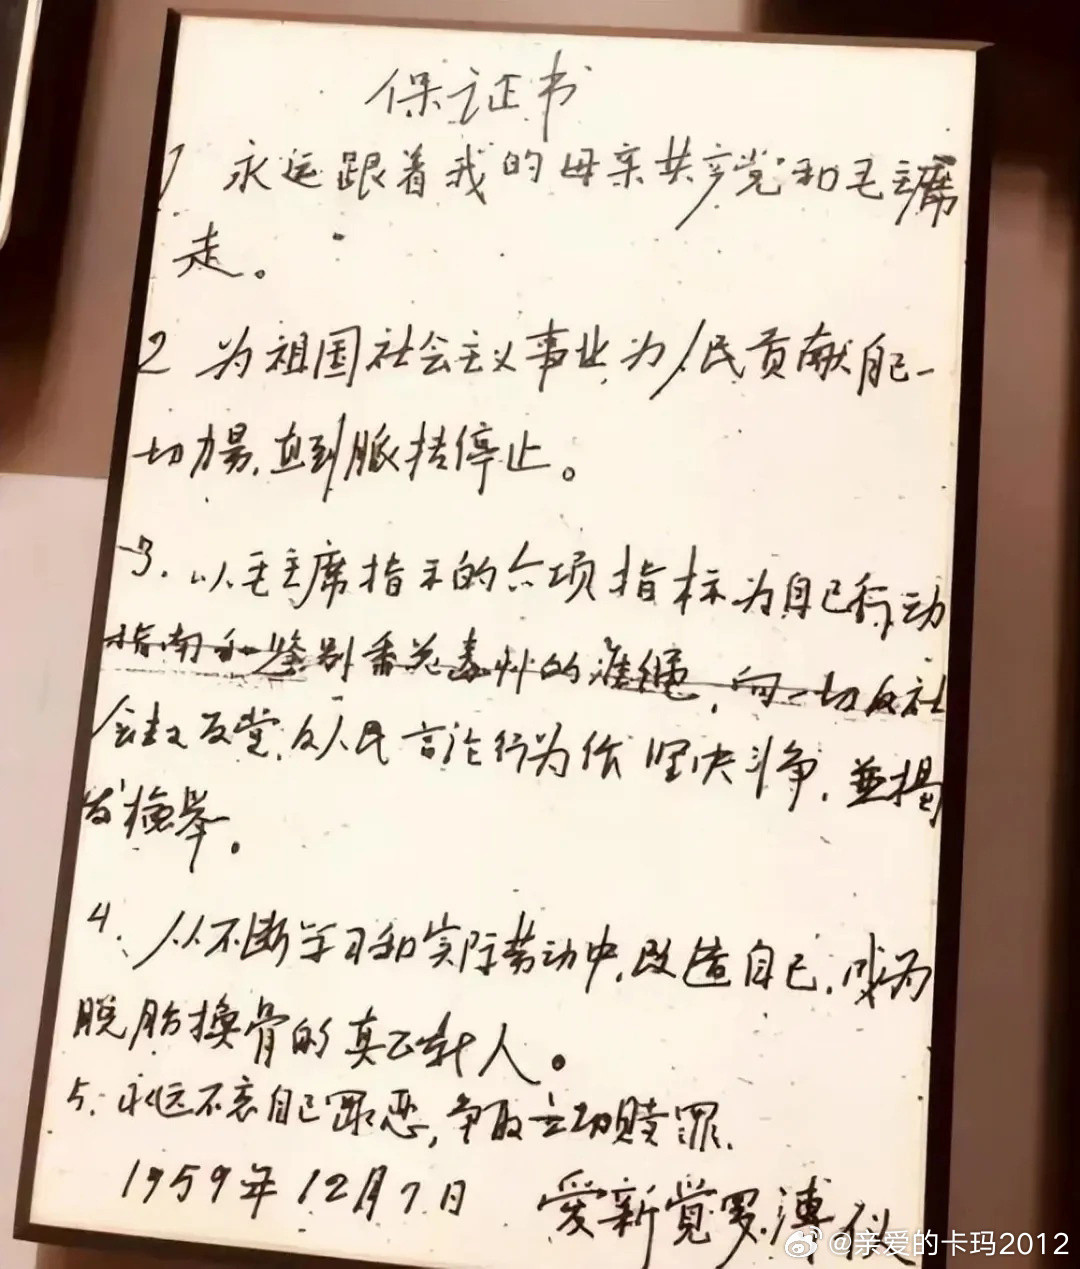 保证书
1 永远跟着我的母亲共产党和毛主席
走。
2 为祖国社会主义事业,为人民贡献自己一
切力量,直到脉搏停止。
3. 以毛主席指示的六项指标为自己行动
指南和鉴别香花毒草的准绳,向一切反社
会主义反党,反人民言论行为作坚决斗争,並揭
发检举。
4. 从不断学习和实际劳动中,改造自己,成为
脱胎换骨的真正新人。
5. 永远不忘自己罪恶,争取立功赎罪.
1959年12月7日 爱新觉罗.溥仪
@亲爱的卡玛2012